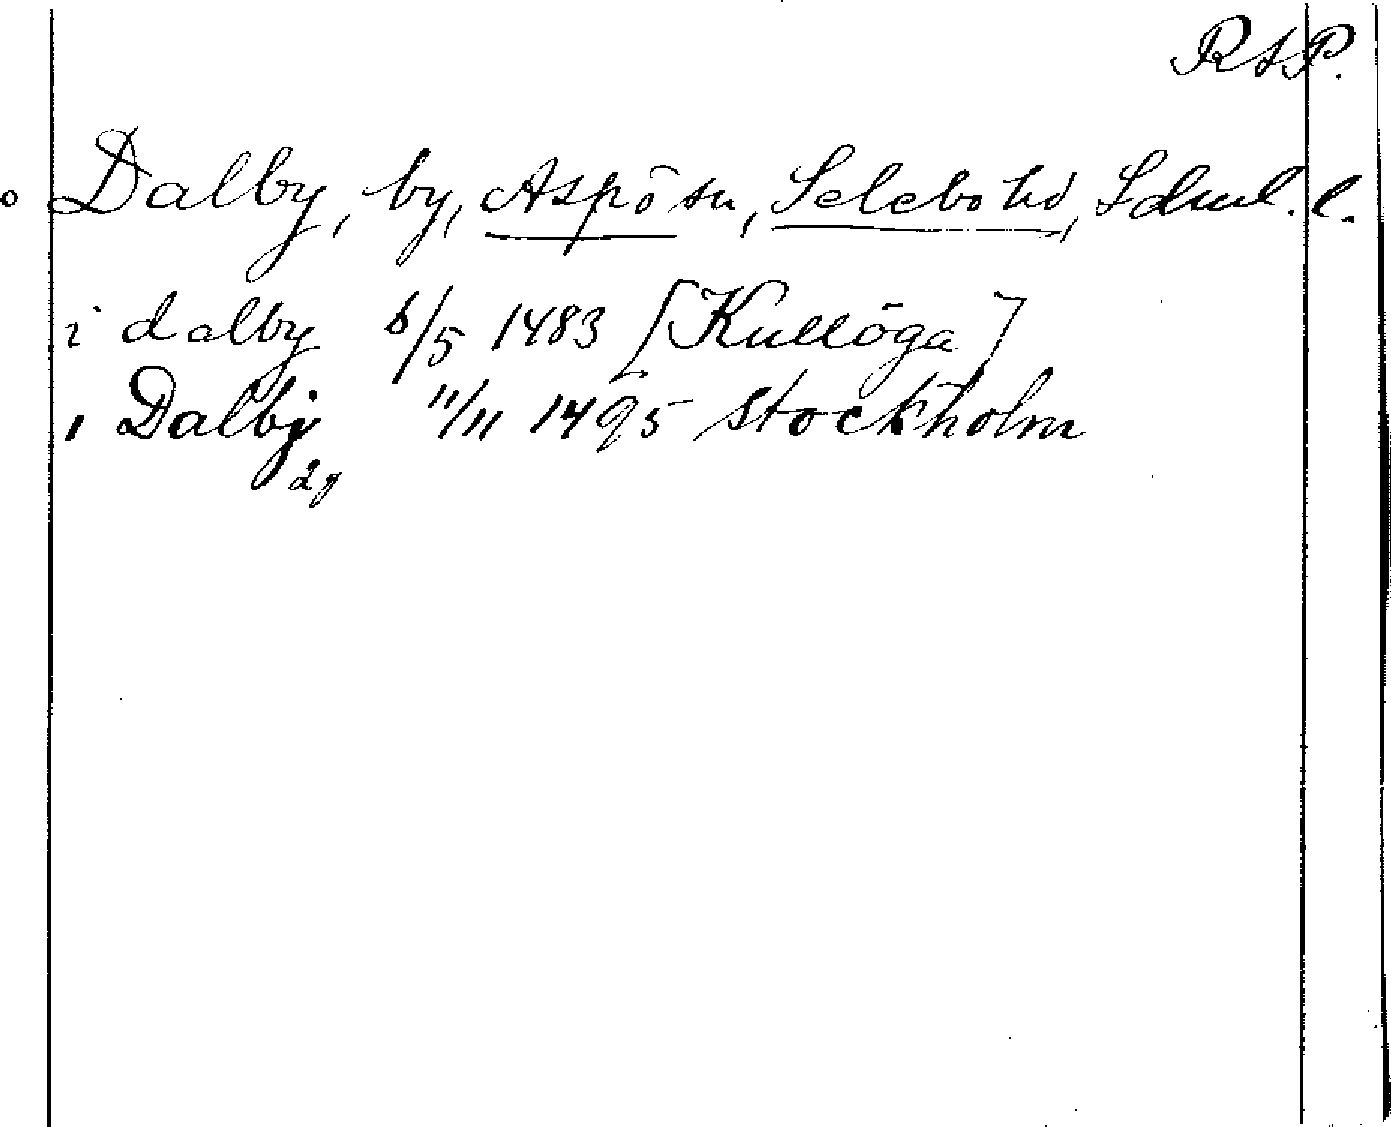 RAP.
Dalby, by, Aspö sn, Selebo hd, Södml. l.
i dalby 6/5 1483 [Kullöga]
i Dalby 11/11 1495 Stockholm
2g